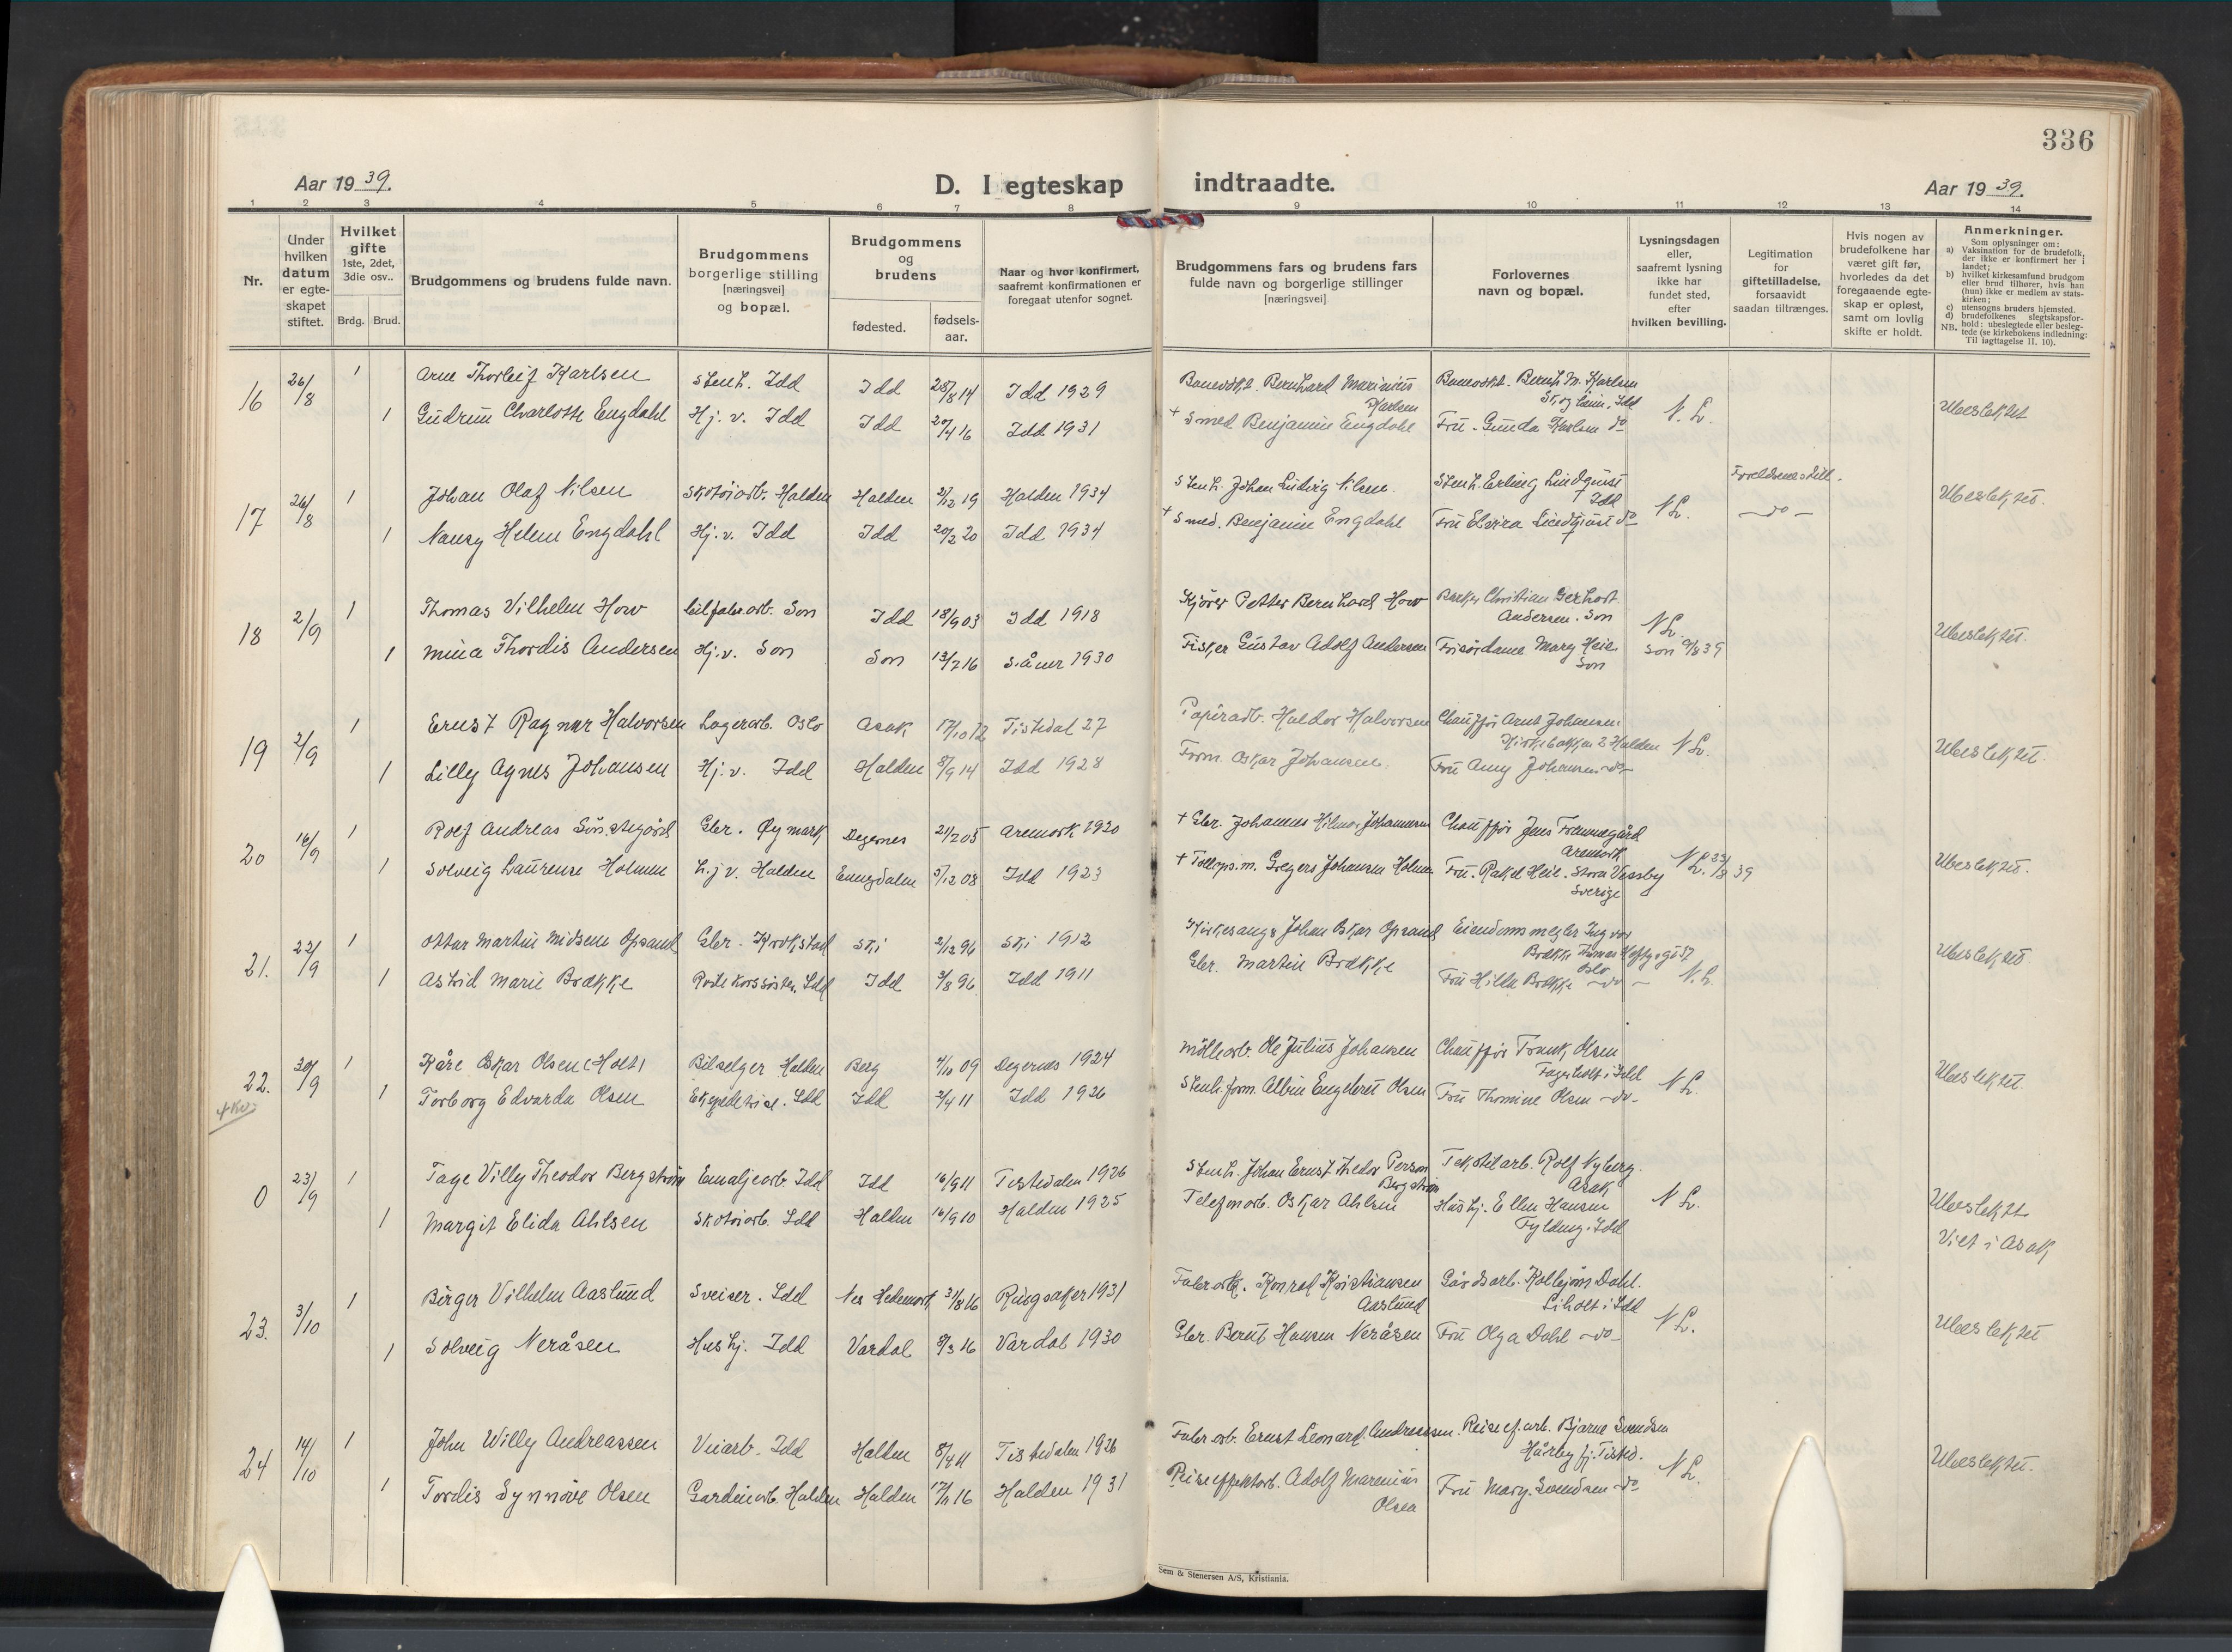 336
Aar 1939.
D. I egteskap indtraadte.
Aar 1939.
1 2 3 4 5 6 7 8 9 10 11 12 13 14
Nr.
Under hvilken datum er egte-skapet stiftet.
Hvilket gifte 1ste, 2det, 3die osv..
Brdg. Brud.
Brudgommens og brudens fulde navn.
Brudgommens borgerlige stilling [næringsvei] og bopæl.
Brudgommens og brudens
fødested. fødsels-aar.
Naar og hvor konfirmert, saafremt konfirmationen er foregaat utenfor sognet.
Brudgommens fars og brudens fars fulde navn og borgerlige stillinger [næringsvei]
Forlovernes navn og bopæl.
Lysningsdagen eller, saafremt lysning ikke har fundet sted, efter hvilken bevilling.
Legitimation for giftetilladelse, forsaavidt saadan tiltrænges.
Hvis nogen av brudefolkene har været gift før, hvorledes da det foregaaende egte-skap er opløst, samt om lovlig skifte er holdt.
Anmerkninger.
Som oplysninger om:
a) Vaksination for de brudefolk, der ikke er konfirmert her i landet;
b) hvilket kirkesamfund brudgom eller brud tilhører, hvis han (hun) ikke er medlem av stats-kirken;
c) utensogns bruders hjemsted.
d) brudefolkenes slegtskapsfor-hold: ubeslegtede eller besleg-tede (se kirkebokens indledning:
NB. Til iagttagelse II. 10).
16 26/8 1 Arne Thorleif Karlsen Stenh. Idd Idd 28/8 14 Idd 1929 Banevokt. Bernhard Marinius Karlsen Banevokt. Bernh. M. Karlsen N.L. Ubeslektet
1 Gudrun Charlotte Engdahl Hj. v. Idd Idd 20/4 16 Idd 1931 + Smed Benjamin Engdahl Fru. Gunda Karlsen do
17 26/8 1 Johan Olaf Nilsen Skotöiarb. Halden Halden 2/12 19 Halden 1934 Stenh. Johan Ludvig Nilsen. Stenh. Erling Lindquist Idd N L. Ubeslektet.
1 Nancy Helene Engdahl Hj. v. Idd Idd 20/2 20 Idd 1934 + Smed. Benjamin Engdahl Fru Elvira Lindquist do — do —
18 2/9 1 Thomas Vilhelm How Son Idd 18/9 03 Idd 1918 Kjörer Petter Bernhard How Christian Gerhart Andersen. Son N L. Ubeslektet.
1 Mina Thordis Andersen Hj. v. Son Son 13/2 16 Såner 1930 Fisker Gustav Adolf Andersen Frisördame Mary Heie Son Son
19 2/9 1 Ernst Ragnar Halvorsen Lagerarb. Oslo Asak 17/10 12 Tistedal 27 Papirarb. Haldor Halvorsen Chauffør Arnt Johansen Kirkebakken 2 Halden N L. Ubeslektet.
1 Lilly Agnes Johansen Hj. v. Idd Halden 8/9 14 Idd 1928 Form. Oskar Johansen. Fru Amy Johansen — do —
20 16/9 1 Rolf Andreas Gbr. Øymark Degernes 21/2 05 Aremark 1920 + Gbr. Johannes Hilmar Johannesen Chauffør Jens Aremark N L. Ubeslektet.
1 Solveig Laurense Holmen H.j v. Halden Enningdalen 5/12 08 Idd 1923 + Gregers Johansen Holmen Fru. Rakel Heie. Stora Vässby Sverige
21. 22/9 1 Ottar Martin Opsand Gbr. Krokstad Ski 2/12 96 Ski 1912 Kirkesang. Johan Oskar Opsand Eiendomsmegler Ingvar Brække Oslo Ubeslektet
1 Astrid Marie Brække Röde Korssöster. Idd Idd 3/8 96 Idd 1911 Gbr. Martin Brække Fru Hilda Brække — do — N. L.
22. 30/9 1 Kåre Oskar Olsen (Holt) Bilselger Halden Berg 4/10 09 Degernes 1924 Möllearb. Ole Julius Johansen Chauffør Frank Olsen Fagerholt i Idd N L. Ubeslektet.
1 Torborg Edvarda Olsen Ekspeditrise. Idd Idd 3/4 11 Idd 1926 Stenh. form. Albin Engebret Olsen Fru Thomine Olsen — do —
0 23/9 1 Tage Villy Theodor Bergström Emaljearb. Idd Idd 16/9 11 Tistedalen 1926 Stenh. Johan Ernst Theodor Person Bergström Tekstilarb. Rolf Nyberg. Asak N L. Ubeslektet
1 Margit Elida Ahlsen Skotöiarb. Idd Halden 16/9 10 Halden 1925 Telefonarb. Oskar Ahlsen Hushj. Ellen Hansen Idd Viet i Asak
23. 3/10 1 Birger Vilhelm Aaslund Sveiser. Idd Nes Hedemark 31/8 16 Ringsaker 1931 Fabr. arb. Konrad Kristiansen Aaslund Gårdsarb. Kolbjörn Dahl. Liholt i Idd N L. Ubeslektet
1 Solveig Neråsen Hushj. Idd Vardal 8/3 16 Vardal 1930 Gbr. Bernt Hansen Neråsen Fru Olga Dahl — do —
24 14/10 1 John Willy Andreassen Veiarb. Idd Halden 8/4 11 Tistedalen 1926 Fabr. arb. Ernst Leonard Andreassen. Reiseef. arb. Bjarne Svendsen N L. Ubeslektet.
1 Tordis Synnöve Olsen Gardinarb. Halden Halden 17/11 16 Halden 1931 Reiseffektarb. Adolf Marenius Olsen Fru Mary. Svendsen do
Sem & Stenersen A/S, Kristiania.